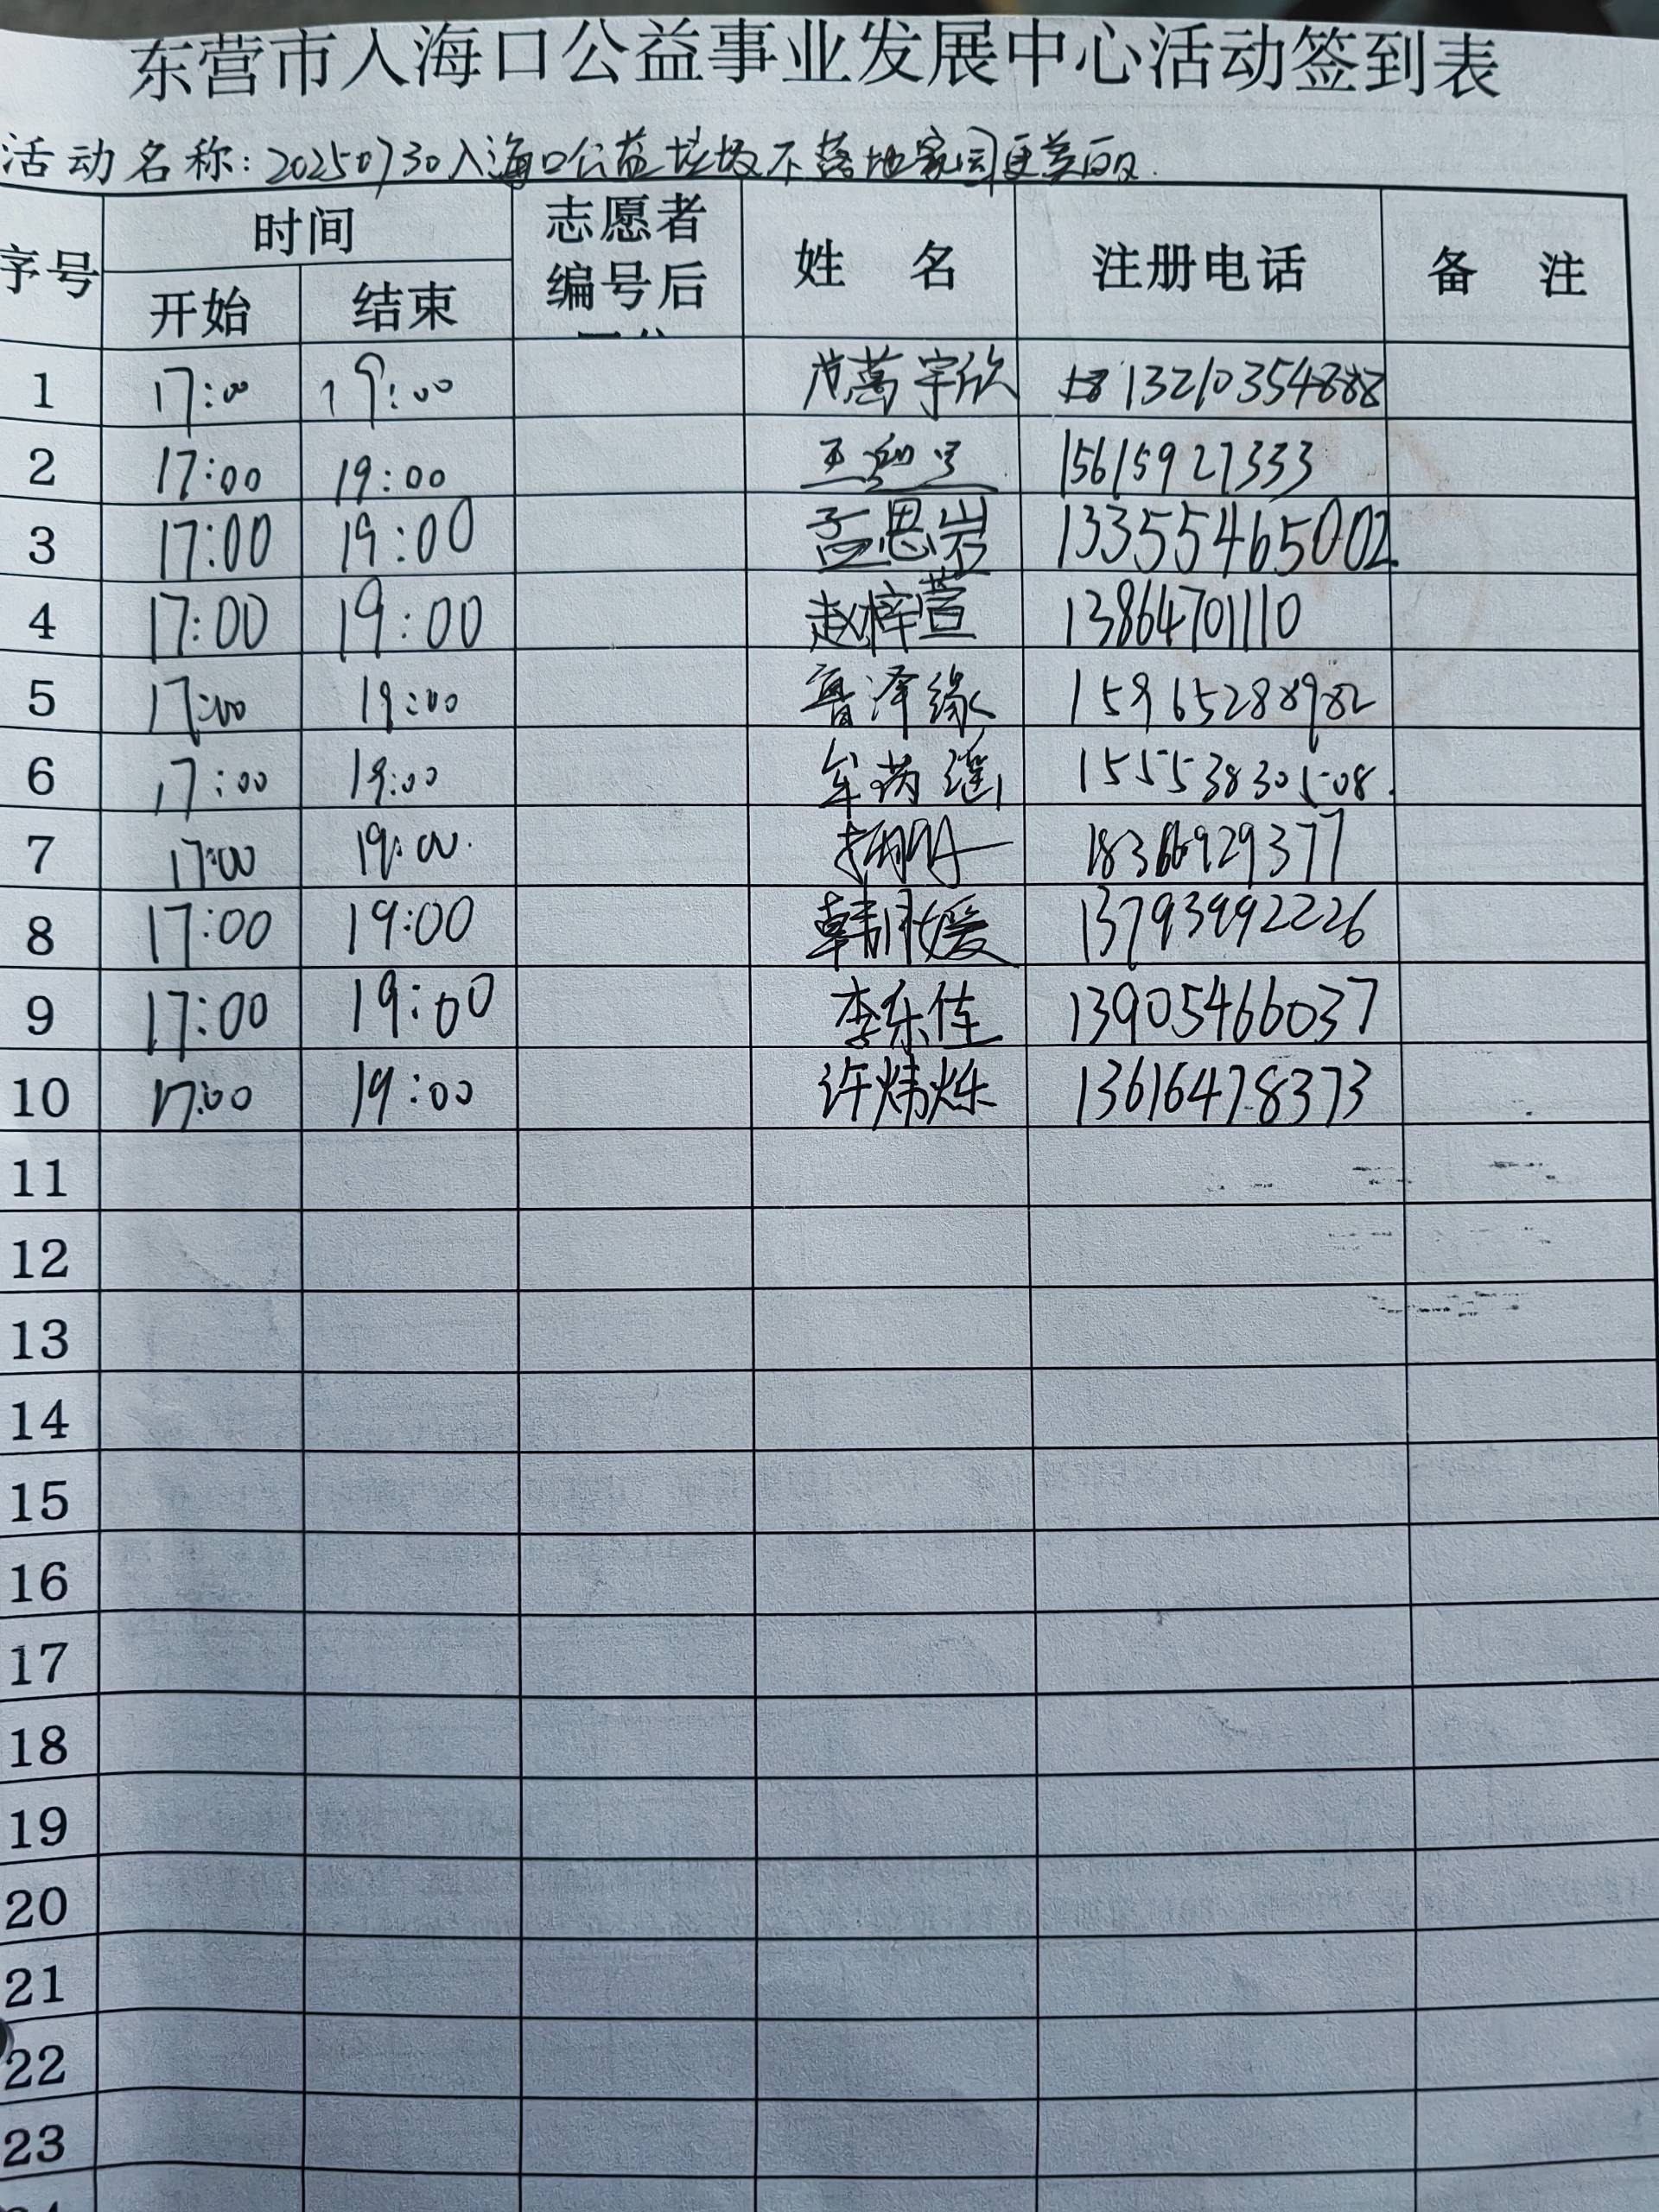 东营市入海口公益事业发展中心活动签到表
活动名称:20250730入海口公益垃圾不落地家园更美丽.
序号 时间 志愿者编号后 姓名 注册电话 备注
开始 结束
1 17:00 19:00 宇欣 13210354888
2 17:00 19:00 王 15615927333
3 17:00 19:00 孟思岩 13355465002
4 17:00 19:00 赵梓萱 13864701110
5 17:00 19:00 鲁泽缘 15965288982
6 17:00 19:00 牟芮瑶 15553830508.
7 17:00 19:00. 18366929377
8 17:00 19:00 韩月媛 13793992226
9 17:00 19:00 李东佳 13905466037
10 17:00 19:00 许炜烁 13616478373
11
12
13
14
15
16
17
18
19
20
21
22
23